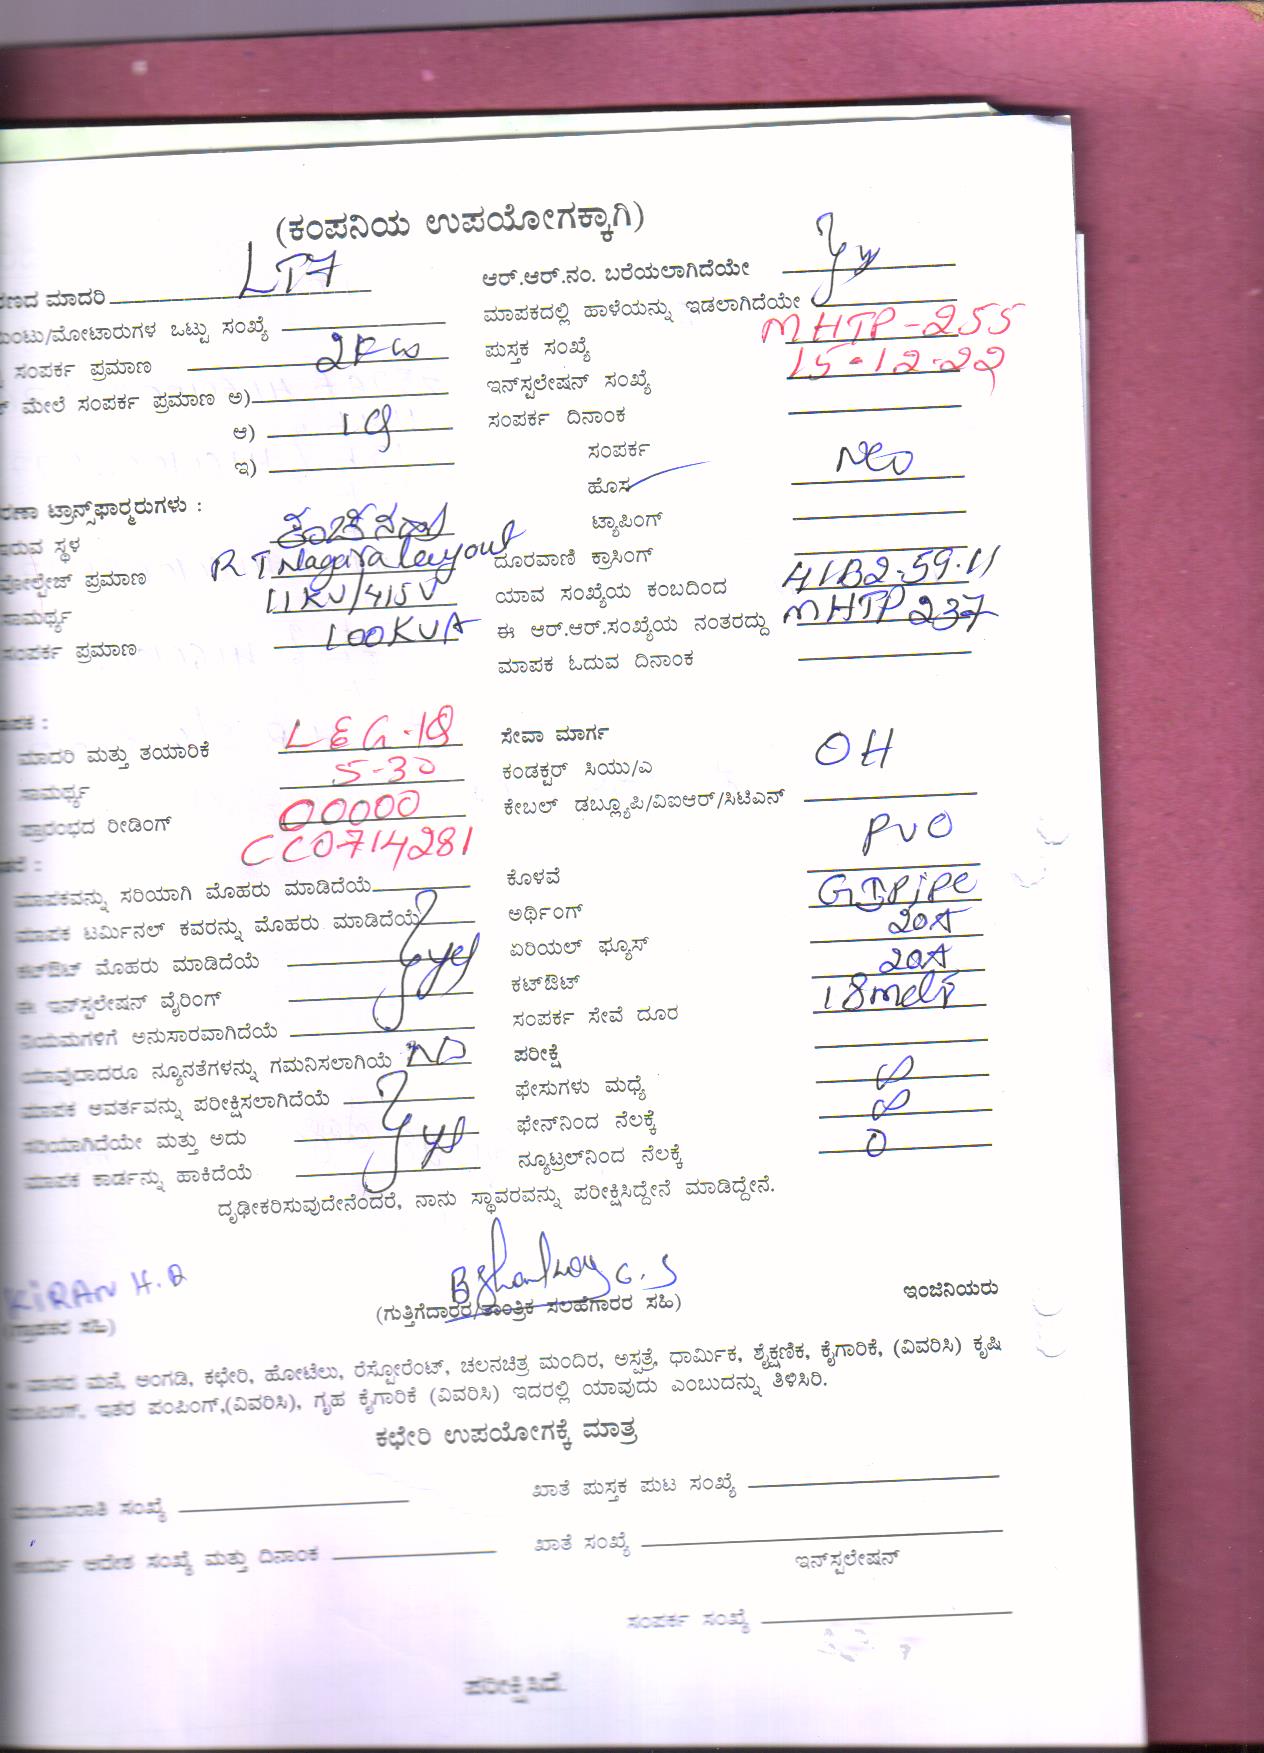 (ಕಂಪನಿಯ ಉಪಯೋಗಕ್ಕಾಗಿ)
ಮಾದರಿ LT7
ಆರ್.ಆರ್.ನಂ. ಬರೆಯಲಾಗಿದೆಯೇ
ಮೋಟಾರುಗಳ ಒಟ್ಟು ಸಂಖ್ಯೆ
ಮಾಪಕದಲ್ಲಿ ಹಾಳೆಯನ್ನು ಇಡಲಾಗಿದೆಯೇ
ಸಂಪರ್ಕ ಪ್ರಮಾಣ 2KW
ಪುಸ್ತಕ ಸಂಖ್ಯೆ MHTP-255
ಮೇಲೆ ಸಂಪರ್ಕ ಪ್ರಮಾಣ ಅ)
ಇನ್‌ಸ್ಟಲೇಷನ್ ಸಂಖ್ಯೆ 15-12-22
ಆ)
ಸಂಪರ್ಕ ದಿನಾಂಕ
ಇ)
ಸಂಪರ್ಕ
ಹೊಸ New
ಟ್ರಾನ್ಸ್‌ಫಾರ್ಮರುಗಳು :
ಟ್ಯಾಪಿಂಗ್
ಇರುವ ಸ್ಥಳ
RT Nagara layout
ದೂರವಾಣಿ ಕ್ರಾಸಿಂಗ್
ವೋಲ್ಟೇಜ್ ಪ್ರಮಾಣ
ಯಾವ ಸಂಖ್ಯೆಯ ಕಂಬದಿಂದ
ಸಾಮರ್ಥ್ಯ 11KV/415V
ಈ ಆರ್.ಆರ್.ಸಂಖ್ಯೆಯ ನಂತರದ್ದು MHTP 237
ಸಂಪರ್ಕ ಪ್ರಮಾಣ 100KVA
ಮಾಪಕ ಓದುವ ದಿನಾಂಕ
ಮಾದರಿ ಮತ್ತು ತಯಾರಿಕೆ L&G-1Φ
ಸೇವಾ ಮಾರ್ಗ
ಸಾಮರ್ಥ್ಯ 5-30
ಕಂಡಕ್ಟರ್ ಸಿಯು/ಎ OH
ಪ್ರಾರಂಭದ ರೀಡಿಂಗ್ 00000
ಕೇಬಲ್ ಡಬ್ಲ್ಯೂಪಿ/ವಿಐಆರ್/ಸಿಟಿಎನ್
CC0714281
ಮಾಪಕವನ್ನು ಸರಿಯಾಗಿ ಮೊಹರು ಮಾಡಿದೆಯೆ
ಕೊಳವೆ
ಮಾಪಕ ಟರ್ಮಿನಲ್ ಕವರನ್ನು ಮೊಹರು ಮಾಡಿದೆಯೆ
ಅರ್ಥಿಂಗ್ GI Pipe
ಕಟ್‌ಔಟ್ ಮೊಹರು ಮಾಡಿದೆಯೆ yes
ಏರಿಯಲ್ ಫ್ಯೂಸ್ 20A
ಈ ಇನ್‌ಸ್ಟಲೇಷನ್ ವೈರಿಂಗ್
ಕಟ್‌ಔಟ್ 20A
ನಿಯಮಗಳಿಗೆ ಅನುಸಾರವಾಗಿದೆಯೆ
ಸಂಪರ್ಕ ಸೇವೆ ದೂರ
ಯಾವುದಾದರೂ ನ್ಯೂನತೆಗಳನ್ನು ಗಮನಿಸಲಾಗಿಯೆ NO
ಪರೀಕ್ಷೆ
ಮಾಪಕ ಅವರ್ತವನ್ನು ಪರೀಕ್ಷಿಸಲಾಗಿದೆಯೆ
ಫೇಸುಗಳು ಮಧ್ಯೆ ∞
ಸರಿಯಾಗಿದೆಯೇ ಮತ್ತು ಅದು yes
ಫೇನ್‌ನಿಂದ ನೆಲಕ್ಕೆ ∞
ಮಾಪಕ ಕಾರ್ಡನ್ನು ಹಾಕಿದೆಯೆ
ನ್ಯೂಟ್ರಲ್‌ನಿಂದ ನೆಲಕ್ಕೆ 0
ದೃಢೀಕರಿಸುವುದೇನೆಂದರೆ, ನಾನು ಸ್ಥಾವರವನ್ನು ಪರೀಕ್ಷಿಸಿದ್ದೇನೆ ಮಾಡಿದ್ದೇನೆ.
KIRAN H.
(ಗುತ್ತಿಗೆದಾರರ/ತಾಂತ್ರಿಕ ಸಲಹೆಗಾರರ ಸಹಿ)
ಇಂಜಿನಿಯರು
ಮನೆ, ಅಂಗಡಿ, ಕಛೇರಿ, ಹೋಟೆಲು, ರೆಸ್ಟೋರೆಂಟ್, ಚಲನಚಿತ್ರ ಮಂದಿರ, ಅಸ್ಪತ್ರೆ, ಧಾರ್ಮಿಕ, ಶೈಕ್ಷಣಿಕ, ಕೈಗಾರಿಕೆ, (ವಿವರಿಸಿ) ಕೃಷಿ
ಇತರ ಪಂಪಿಂಗ್,(ವಿವರಿಸಿ), ಗೃಹ ಕೈಗಾರಿಕೆ (ವಿವರಿಸಿ) ಇದರಲ್ಲಿ ಯಾವುದು ಎಂಬುದನ್ನು ತಿಳಿಸಿರಿ.
ಕಛೇರಿ ಉಪಯೋಗಕ್ಕೆ ಮಾತ್ರ
ಮಂಜೂರಾತಿ ಸಂಖ್ಯೆ
ಖಾತೆ ಪುಸ್ತಕ ಪುಟ ಸಂಖ್ಯೆ
ಕಾರ್ಯ ಆದೇಶ ಸಂಖ್ಯೆ ಮತ್ತು ದಿನಾಂಕ
ಖಾತೆ ಸಂಖ್ಯೆ
ಇನ್‌ಸ್ಟಲೇಷನ್
ಸಂಪರ್ಕ ಸಂಖ್ಯೆ
ಪರೀಕ್ಷಿಸಿದೆ.